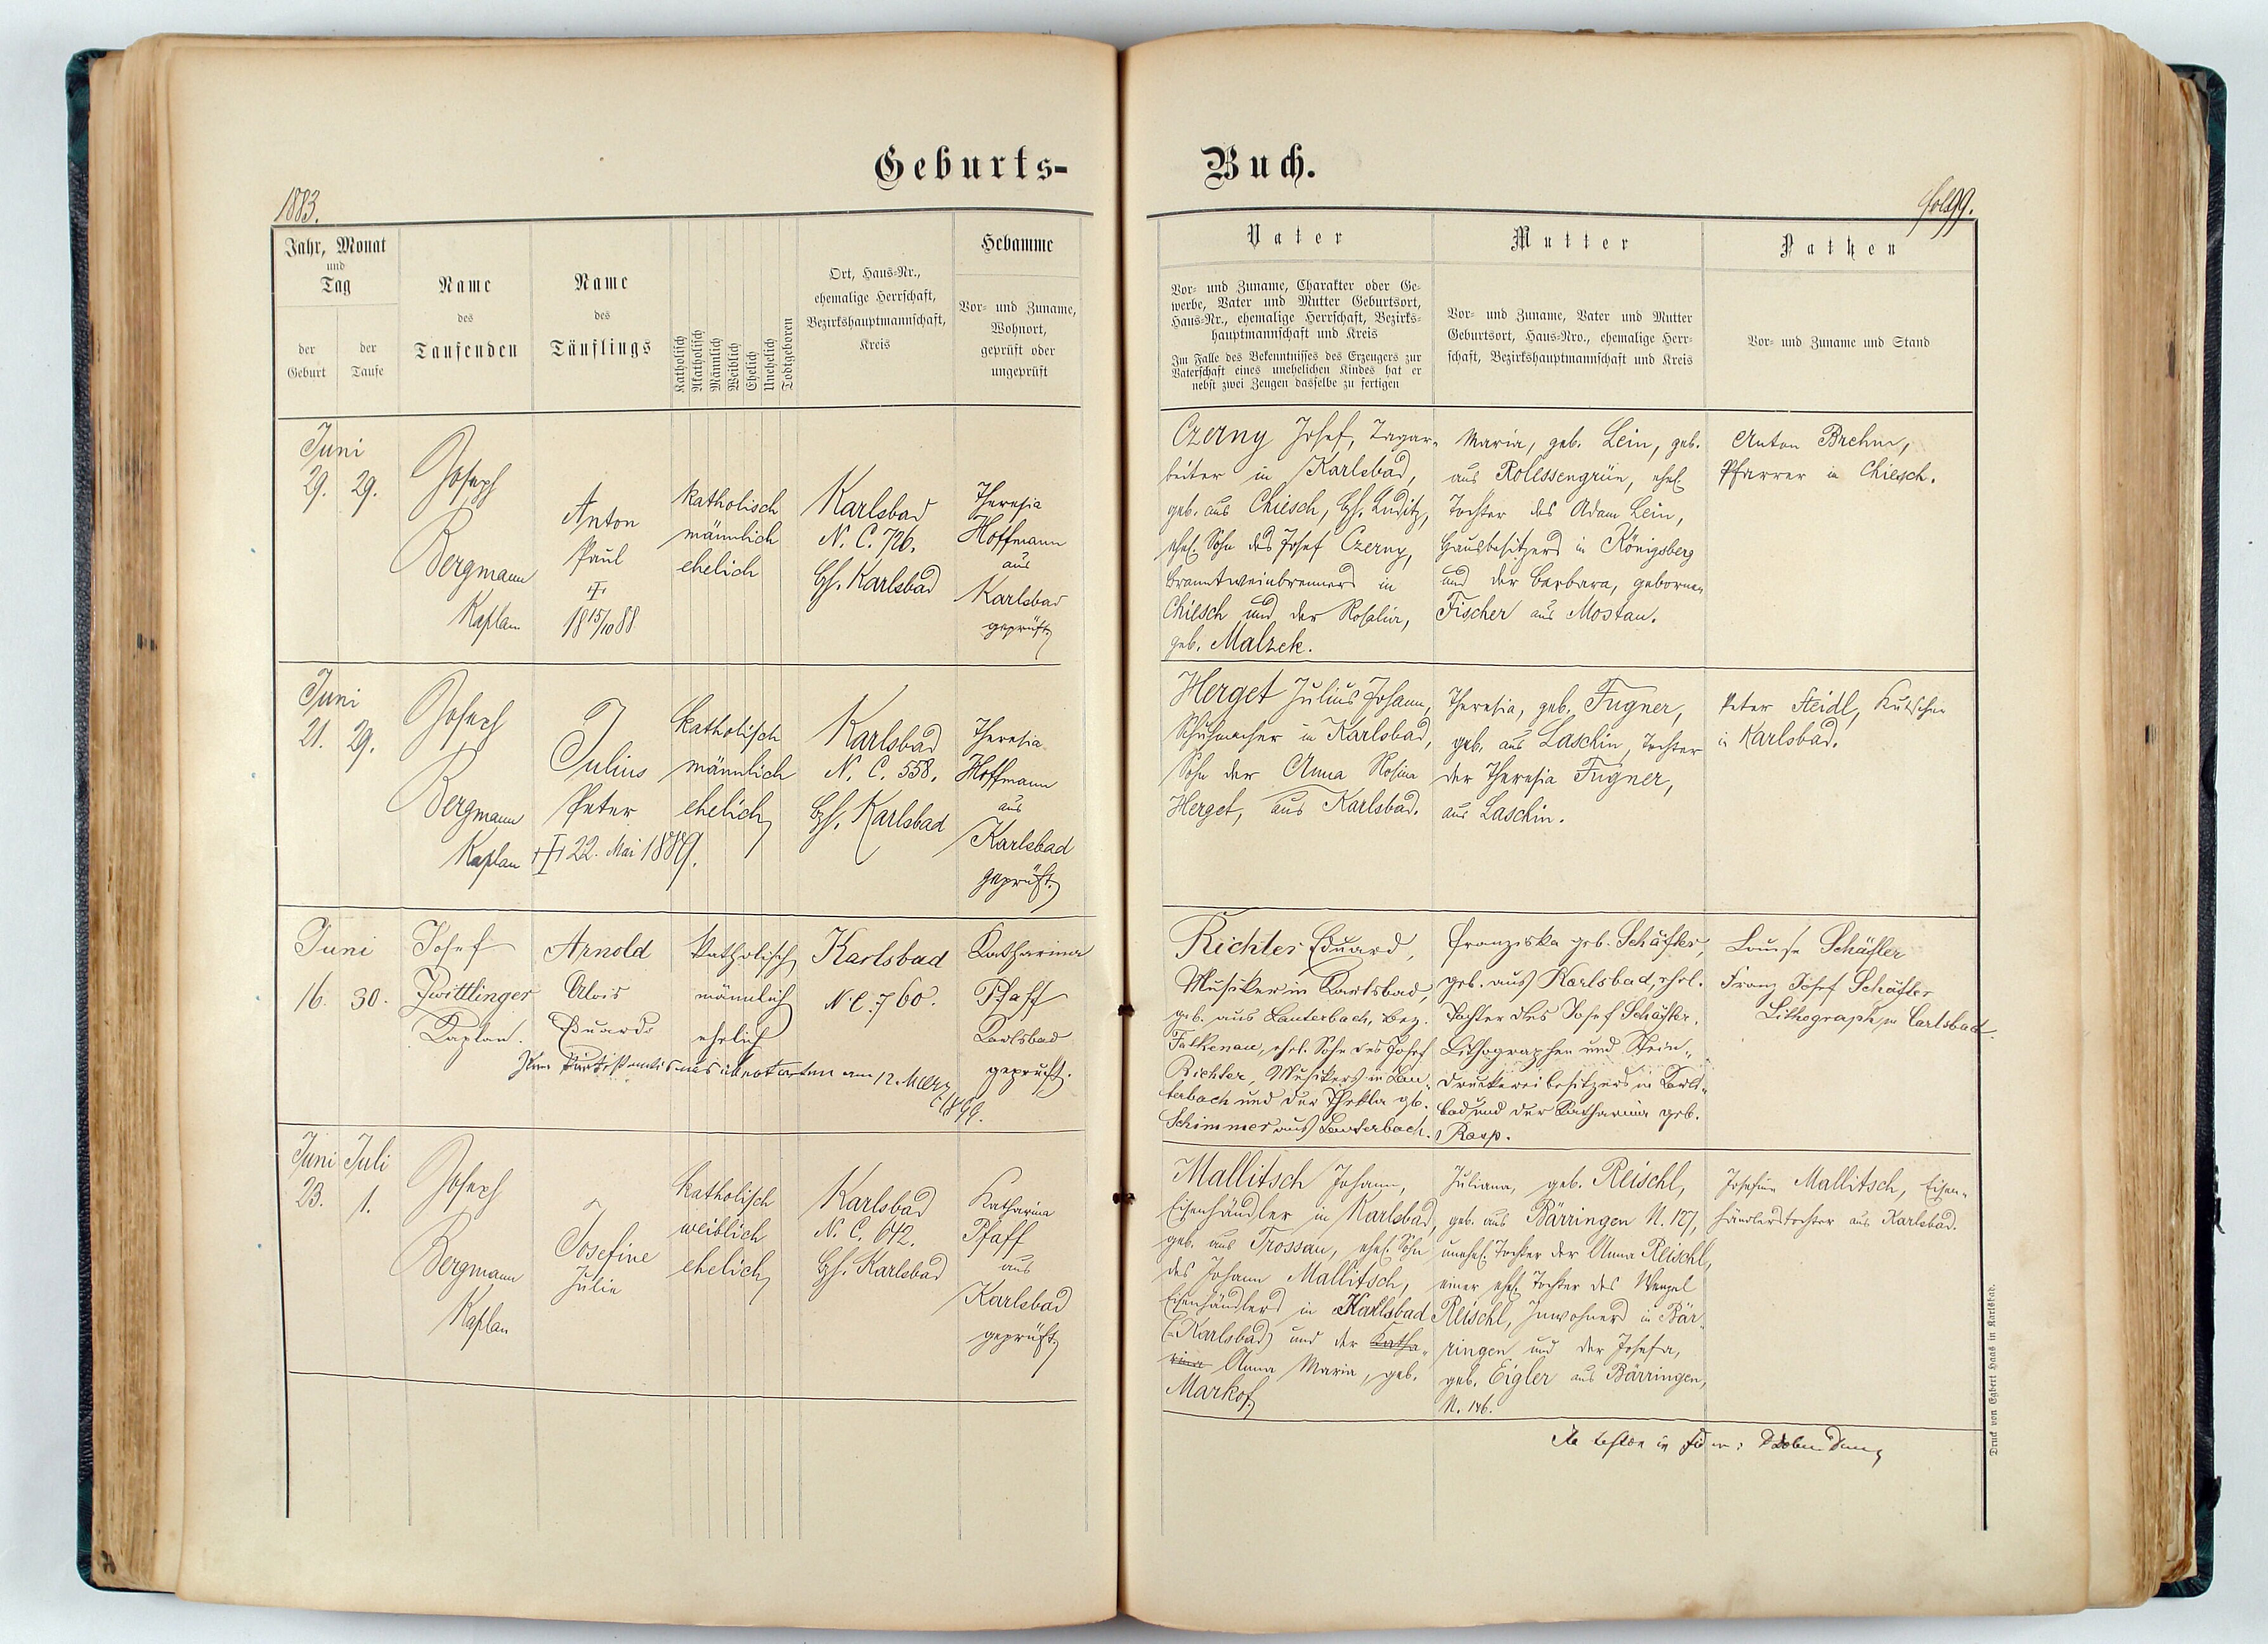 Geburts-
Buch.
1883.
Fol. 99.
Jahr, Monat
und
Tag
der
Geburt
der
Taufe
Name
des
Taufenden
Name
des
Täuflings
Katholisch
Akatholisch
Männlich
Weiblich
Ehelich
Unehelich
Todtgeboren
Ort, Haus-Nr.,
ehemalige Herrschaft,
Bezirkshauptmannschaft,
Kreis
Hebamme
Vor- und Zuname,
Wohnort,
geprüft oder
ungeprüft
Vater
Vor- und Zuname, Charakter oder Ge-
werbe, Vater und Mutter Geburtsort,
Haus-Nr., ehemalige Herrschaft, Bezirks-
hauptmannschaft und Kreis
Im Falle des Bekenntnisses des Erzeugers zur
Vaterschaft eines unehelichen Kindes hat er
nebst zwei Zeugen dasselbe zu fertigen
Mutter
Vor- und Zuname, Vater und Mutter
Geburtsort, Haus-Nro., ehemalige Herr-
schaft, Bezirkshauptmannschaft und Kreis
Pathen
Vor- und Zuname und Stand
Juni
29. 29.
Joseph
Bergmann
Kaplan
Anton
Paul
18 15/10 88
katholisch
männlich
ehelich
Karlsbad
N. C. 726.
Bh. Karlsbad
Theresia
Hoffmann
aus
Karlsbad
geprüft
Czerny Josef, Tagar-
beiter in Karlsbad,
geb. aus Chiesch, Bh. Luditz,
ehel. Sohn des Josef Czerny,
Branntweinbrenners in
Chiesch und der Rosalia,
geb. Malzek.
Maria, geb. Lein, geb.
aus Rolessengrün, ehel.
Tochter des Adam Lein,
Hausbesitzers in Königsberg
und der Barbara, geborenen
Fischer aus Mostau.
Anton Brehm,
Pfarrer in Chiesch.
Juni
21. 29.
Joseph
Bergmann
Kaplan
Julius
Peter
22. Mai 1889.
katholisch
männlich
ehelich
Karlsbad
N. C. 558.
Bh. Karlsbad
Theresia
Hoffmann
aus
Karlsbad
geprüft
Herget Julius Johann,
Schuhmacher in Karlsbad,
Sohn der Anna Rosina
Herget, aus Karlsbad.
Theresia, geb. Fugner,
geb. aus Laschin, Tochter
der Theresia Fugner,
aus Laschin.
Peter Steidl, Kutscher
in Karlsbad.
Juni
16. 30.
Josef
Zwittlinger
Kaplan.
Arnold
Alois
Eduard
katholisch
männlich
ehelich
Karlsbad
N. C. 760.
Katharina
Pfaff
Karlsbad
geprüft.
Zum Protestantismus übertreten am 12. März
1899.
Richter Eduard,
Musiker in Karlsbad,
geb. aus Lauterbach, Bez.
Falkenau, ehel. Sohn des Josef
Richter, Musikers in Lau-
terbach und der Thekla geb.
Schimmer aus Lauterbach.
Franziska geb. Schäfler,
geb. aus Karlsbad, ehel.
Tochter des Josef Schäfler,
Lithographen und Stein-
druckereibesitzers in Karls-
bad und der Katharina geb.
Rasp.
Louise Schäfler
Franz Josef Schäfler
Lithograph in Carlsbad.
Juni Juli
23. 1.
Joseph
Bergmann
Kaplan
Josefine
Julie
katholisch
weiblich
ehelich
Karlsbad
N. C. 642.
Bh. Karlsbad
Katharina
Pfaff
aus
Karlsbad
geprüft
Mallitsch Johann,
Eisenhändler in Karlsbad,
geb. aus Trossau, ehel. Sohn
des Johann Mallitsch,
Eisenhändlers in Karlsbad
(Karlsbad) und der Katha-
rina Anna Maria, geb.
Markof
Juliana, geb. Reischl,
geb. aus Bärringen N. 127,
unehel. Tochter der Anna Reischl,
einer ehel. Tochter des Wenzel
Reischl, Inwohners in Bär-
ringen und der Josefa,
geb. Eigler aus Bärringen,
N. 146.
Josefine Mallitsch, Eisen-
händlerstochter aus Karlsbad.
Druck von Egbert Haas in Karlsbad.